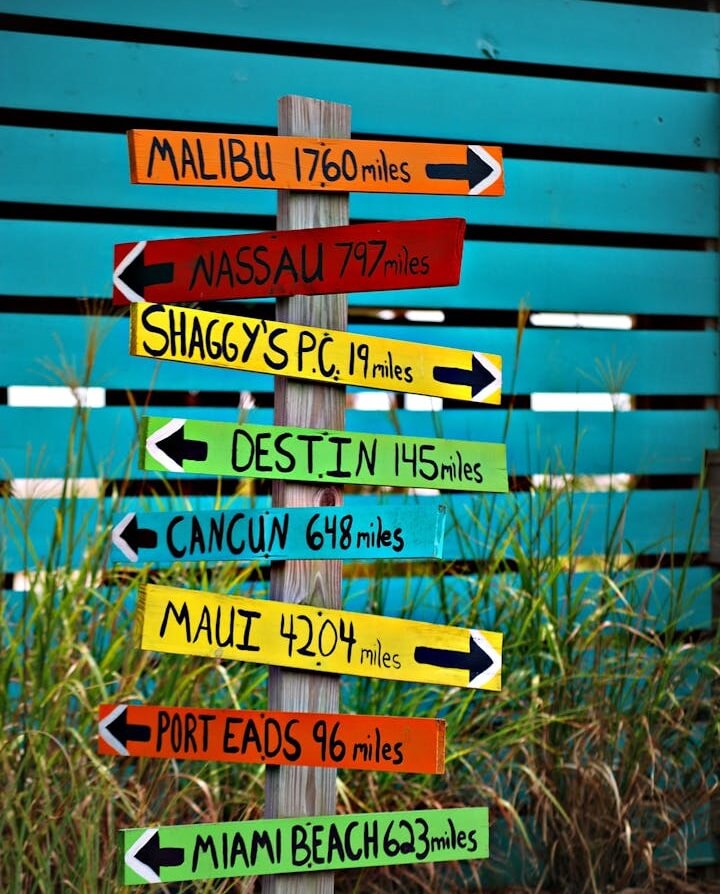 MALIBU 1760 miles
NASSAU 797 miles
SHAGGY'S P.C. 19 miles
DESTIN 145 miles
CANCUN 648 miles
MAUI 4204 miles
PORT EADS 96 miles
MIAMI BEACH 623 miles